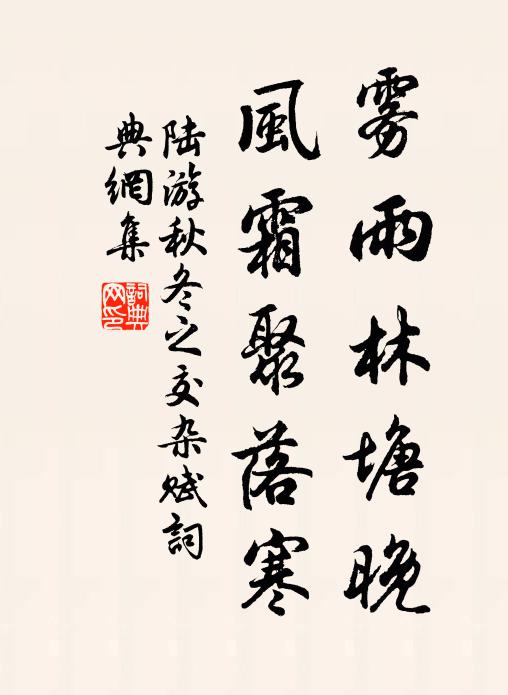 雾雨林塘晚
風霜聚落寒
陆游秋冬之交杂赋詞
典網集
詞典
网印